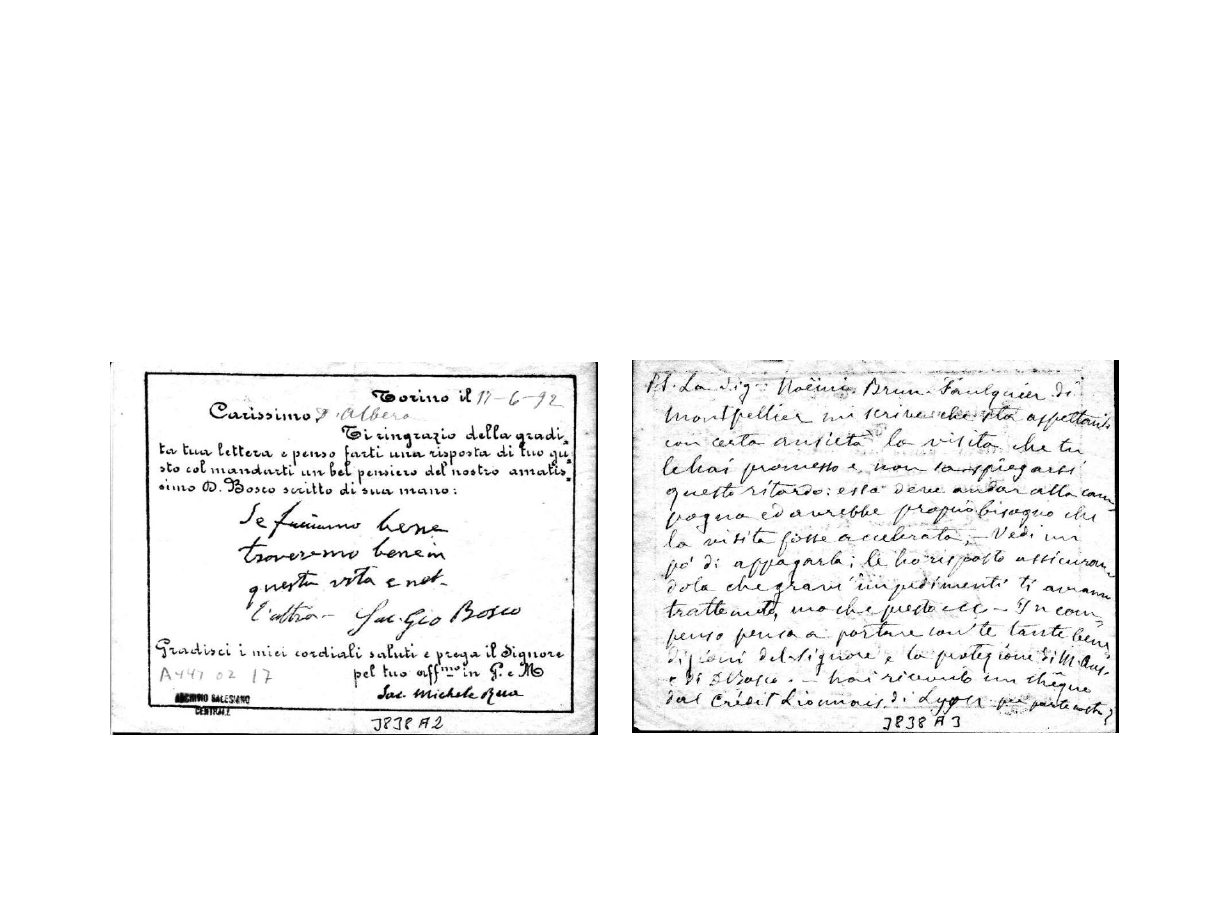 Torino il 17-6-92
Carissimo D. Albera
Ti ringrazio della gradi=
ta tua lettera e penso farti una risposta di tuo gu=
sto col mandarti un bel pensiero del nostro amatis=
simo D. Bosco scritto di sua mano:
Se facciamo bene
troveremo bene in
questa vita e nel-
l'altra - Sac. Gio Bosco
Gradisci i miei cordiali saluti e prega il Signore
pel tuo aff.mo in G. e M
Sac. Michele Rua
A447 02 17
ARCHIVIO SALESIANO
CENTRALE
3838 A2
P.S. La Sig. Noëmi Brun-Faulquier di
Montpellier mi scrive che sta aspettando
con certa ansietà la visita che tu
le hai promesso e non sa spiegarsi
questo ritardo: essa deve andar alla cam=
pagna ed avrebbe proprio bisogno che
la visita fosse accelerata. - Vedi un
po' di appagarla; le ho risposto assicuran=
dola che gravi impedimenti ti avranno
trattenuto, ma che presto ecc - In com=
penso pensa a portare con te tante bene=
dizioni del Signore e la protezione di M. Aus.
e di D Bosco. - hai ricevuto un chêque
dal Crédit Lionnais di Lyon per parte nostra?
3838 A3